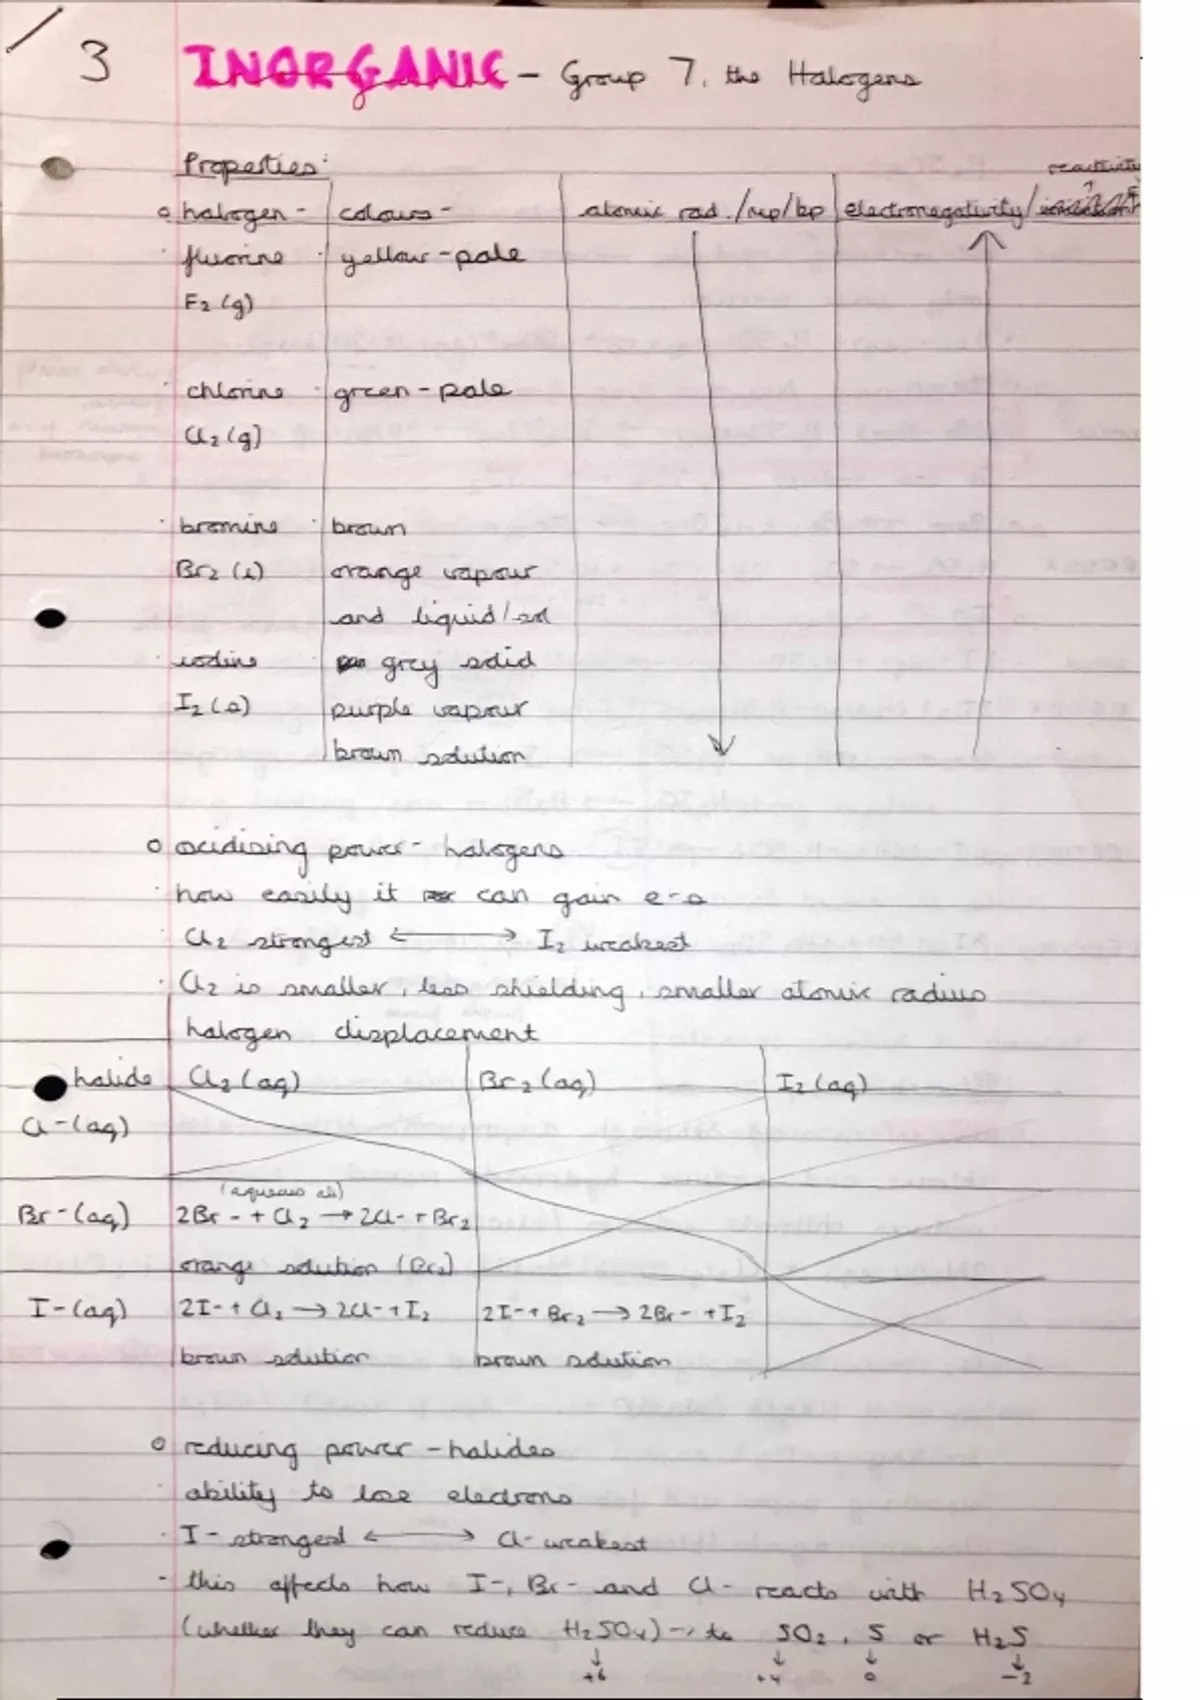 3 INORGANIC - Group 7, the Halogens
Properties:
reactivity
halogen - colours - atomic rad. /mp/bp electronegativity/
fluorine yellow - pale
F2 (g)
chlorine green - pale
Cl2 (g)
bromine brown
Br2 (l) orange vapour
and liquid/sol
iodine grey solid
I2 (s) purple vapour
brown solution
oxidising power - halogens
how easily it can gain e-s
Cl2 strongest ↔ I2 weakest
Cl2 is smaller, less shielding, smaller atomic radius
halogen displacement
halide Cl2 (aq) Br2 (aq) I2 (aq)
Cl- (aq)
(aqueous all)
Br- (aq) 2Br- + Cl2 → 2Cl- + Br2
orange solution (Br2)
I- (aq) 2I- + Cl2 → 2Cl- + I2 2I- + Br2 → 2Br- + I2
brown solution brown solution
reducing power - halides
ability to lose electrons
I- strongest ↔ Cl- weakest
- this affects how I-, Br- and Cl- reacts with H2SO4
(whether they can reduce H2SO4) → to SO2, S or H2S
↓ ↓ ↓ ↓
+6 +4 0 -2